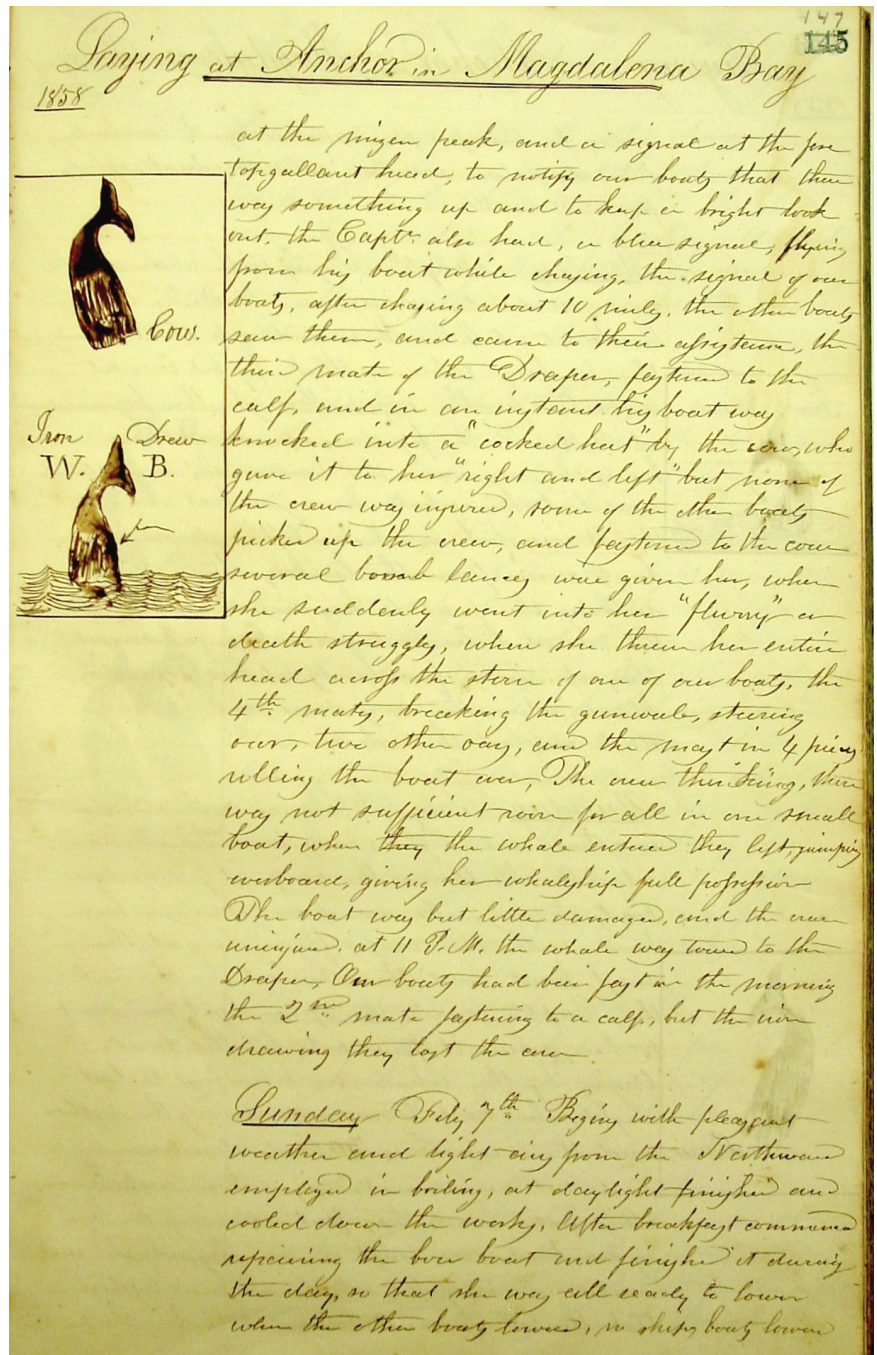 147
145
Laying at Anchor in Magdalena Bay
1858
at the mizen peak, and a signal at the fore
topgallant head, to notify our boats that there
was something up and to keep a bright look
out. the Captn. also had, a blue signal, flying
from his boat while chasing, the signal of our
boats, after chasing about 10 miles, the other boats
saw them, and came to their assistance, the
third mate of the Draper, fastened to the
calf, and in an instant his boat was
knocked into a "cocked hat" by the cow, who
gave it to her "right and left" but none of
the crew was injured, some of the other boats
picked up the crew, and fastened to the cow
several bomb lances were given her, when
she suddenly went into her "flurry" or
death struggles, when she threw her entire
head across the stern of one of our boats, the
4th mates, breaking the gunwale, steering
oar, two other oars, and the mast in 4 pieces
rolling the boat over, The crew thinking, there
was not sufficient room for all in one small
boat, when they the whale entered they left, jumping
overboard, giving her whaleship full possession
The boat was but little damaged, and the crew
uninjured. at 11 P.M. the whale was towed to the
Draper, Our boats had been fast in the morning
the 2nd mate fastening to a calf, but the iron
drawing they lost the cow
Cow.
Iron Drew
W. B.
Sunday Feby 7th Begins with pleasant
weather and light airs from the Northward
employed in boiling, at daylight finished and
cooled down the works, After breakfast commenced
repairing the bow boat and finished it during
the day, so that she was all ready to lower
when the other boats lowered, no ships boats lowered